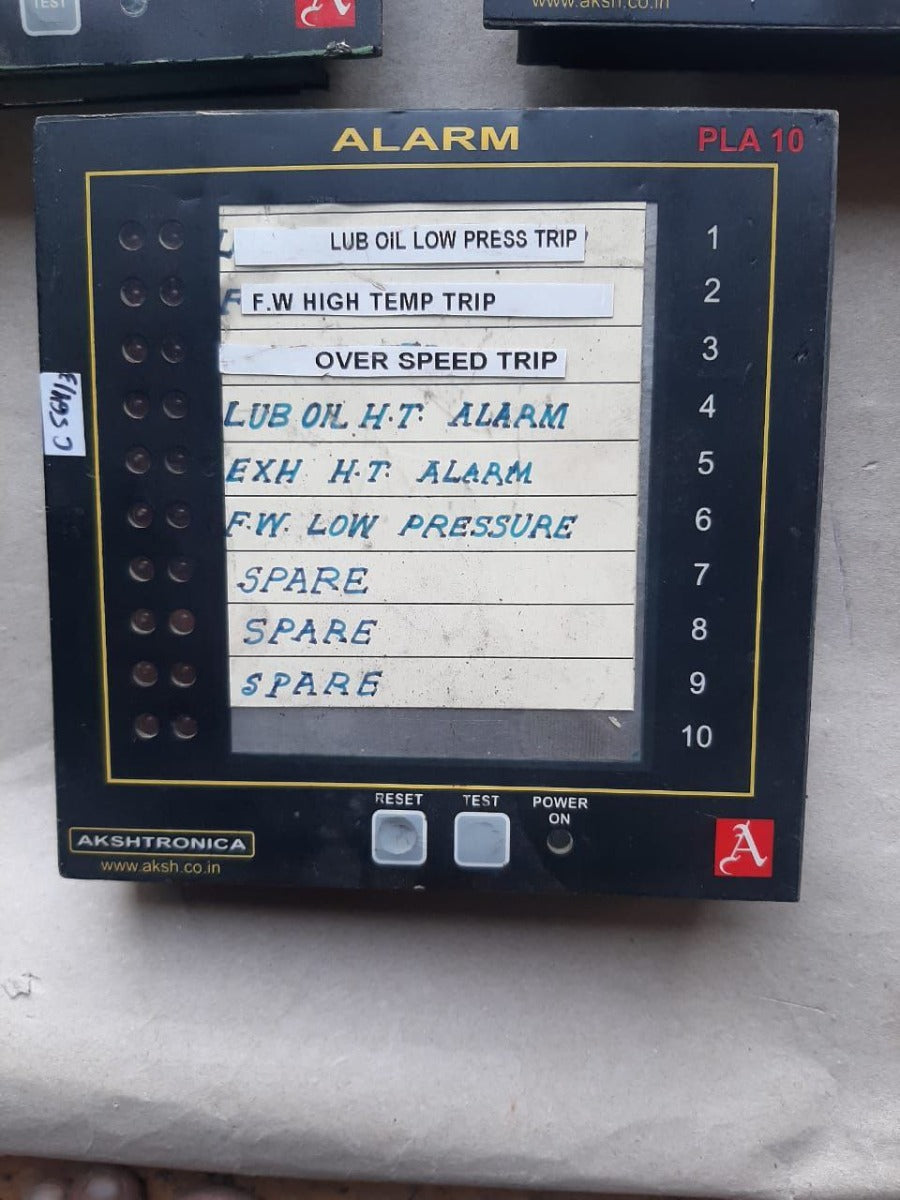 TEST
www.aksh.co.in
ALARM
PLA 10
LUB OIL LOW PRESS TRIP 1
F.W HIGH TEMP TRIP 2
OVER SPEED TRIP 3
LUB OIL H.T. ALARM 4
EXH H.T. ALARM 5
F.W. LOW PRESSURE 6
SPARE 7
SPARE 8
SPARE 9
10
RESET
TEST
POWER
ON
AKSHTRONICA
www.aksh.co.in
A